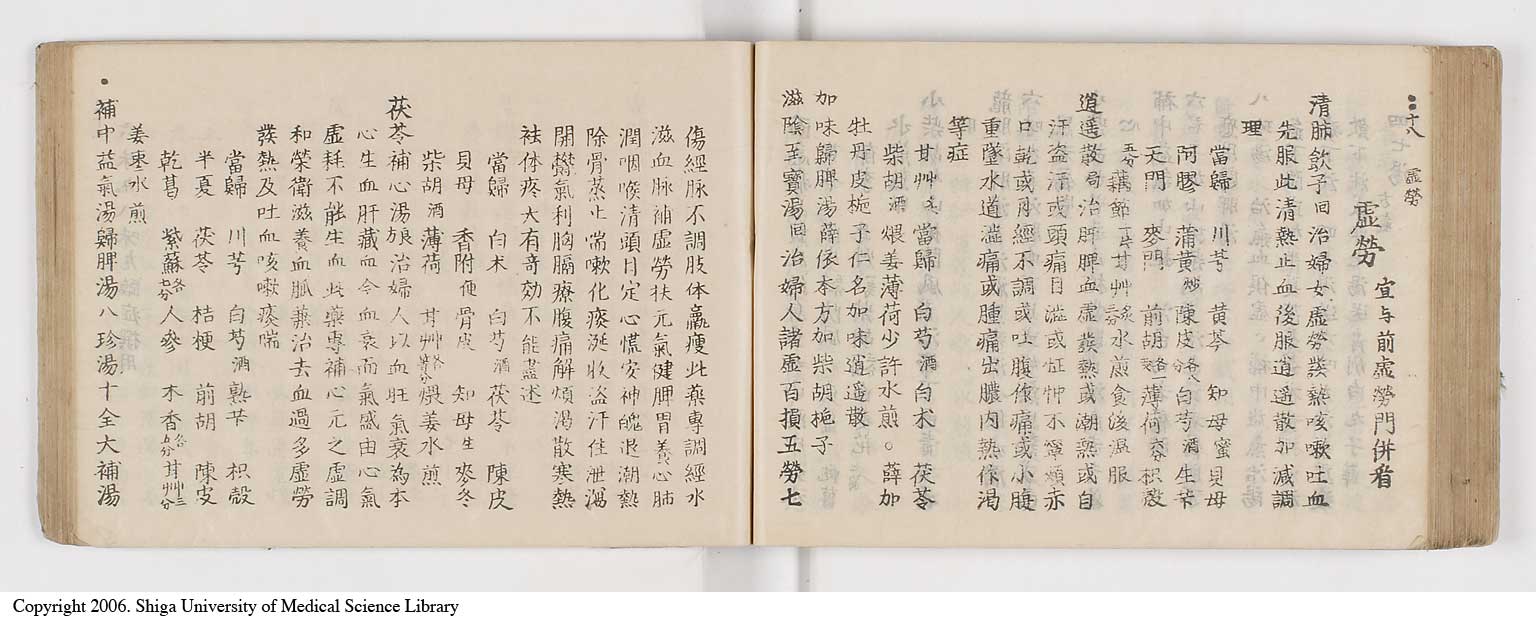 二十八 虛勞
虛勞 宜与前虛勞門併看
清肺飲子回治婦女虛勞發熱咳嗽吐血
先服此清熱止血後服逍遥散加減調
理
當歸 川芎 黃芩 知母蜜 貝母
阿膠 蒲黃炒 陳皮各八分 白芍酒 生芐
天門 麥門 前胡各一 薄荷 枳殼
五分 藕節 甘艸 水煎食後温服
逍遥散局治脾血虛發熱或潮熱或自
汗盗汗或頭痛目澁或怔忡不寧頰赤
口乾或月經不調或吐腹作痛或小腹
重墜水道澁痛或腫痛出膿内熱作渴
等症
甘艸 當歸 白芍酒 白术 茯苓
柴胡酒 煨姜薄荷少許水煎。薛加
牡丹皮梔子仁名加味逍遥散
加味歸脾湯薛依本方加柴胡梔子
滋陰至寶湯回治婦人諸虛百損五勞七
傷經脉不調肢体羸瘦此藥專調經水
滋血脉補虛勞扶元氣健脾胃養心肺
潤咽喉清頭目定心慌安神魄退潮熱
除骨蒸止喘嗽化痰涎收盗汗住泄瀉
開欝氣利胸膈療腹痛解煩渴散寒熱
祛体疼大有奇効不能盡述
當歸 白术 白芍酒 茯苓 陳皮
貝母 香附便 骨皮 知母生 麥冬
柴胡酒 薄荷 甘艸各等分 煨姜水煎
茯苓補心湯 治婦人以血旺氣衰為本
心生血肝藏血今血衰而氣盛由心氣
虛耗不能生血此藥專補心元之虛調
和榮衛滋養血脈兼治去血過多虛勞
發熱及吐血咳嗽痰喘
當歸 川芎 白芍酒 熟芐 枳殼
半夏 茯苓 桔梗 前胡 陳皮
乾葛 紫蘇各七分 人參 木香各五分 甘艸三分
姜棗水煎
補中益氣湯歸脾湯八珍湯十全大補湯
Copyright 2006. Shiga University of Medical Science Library